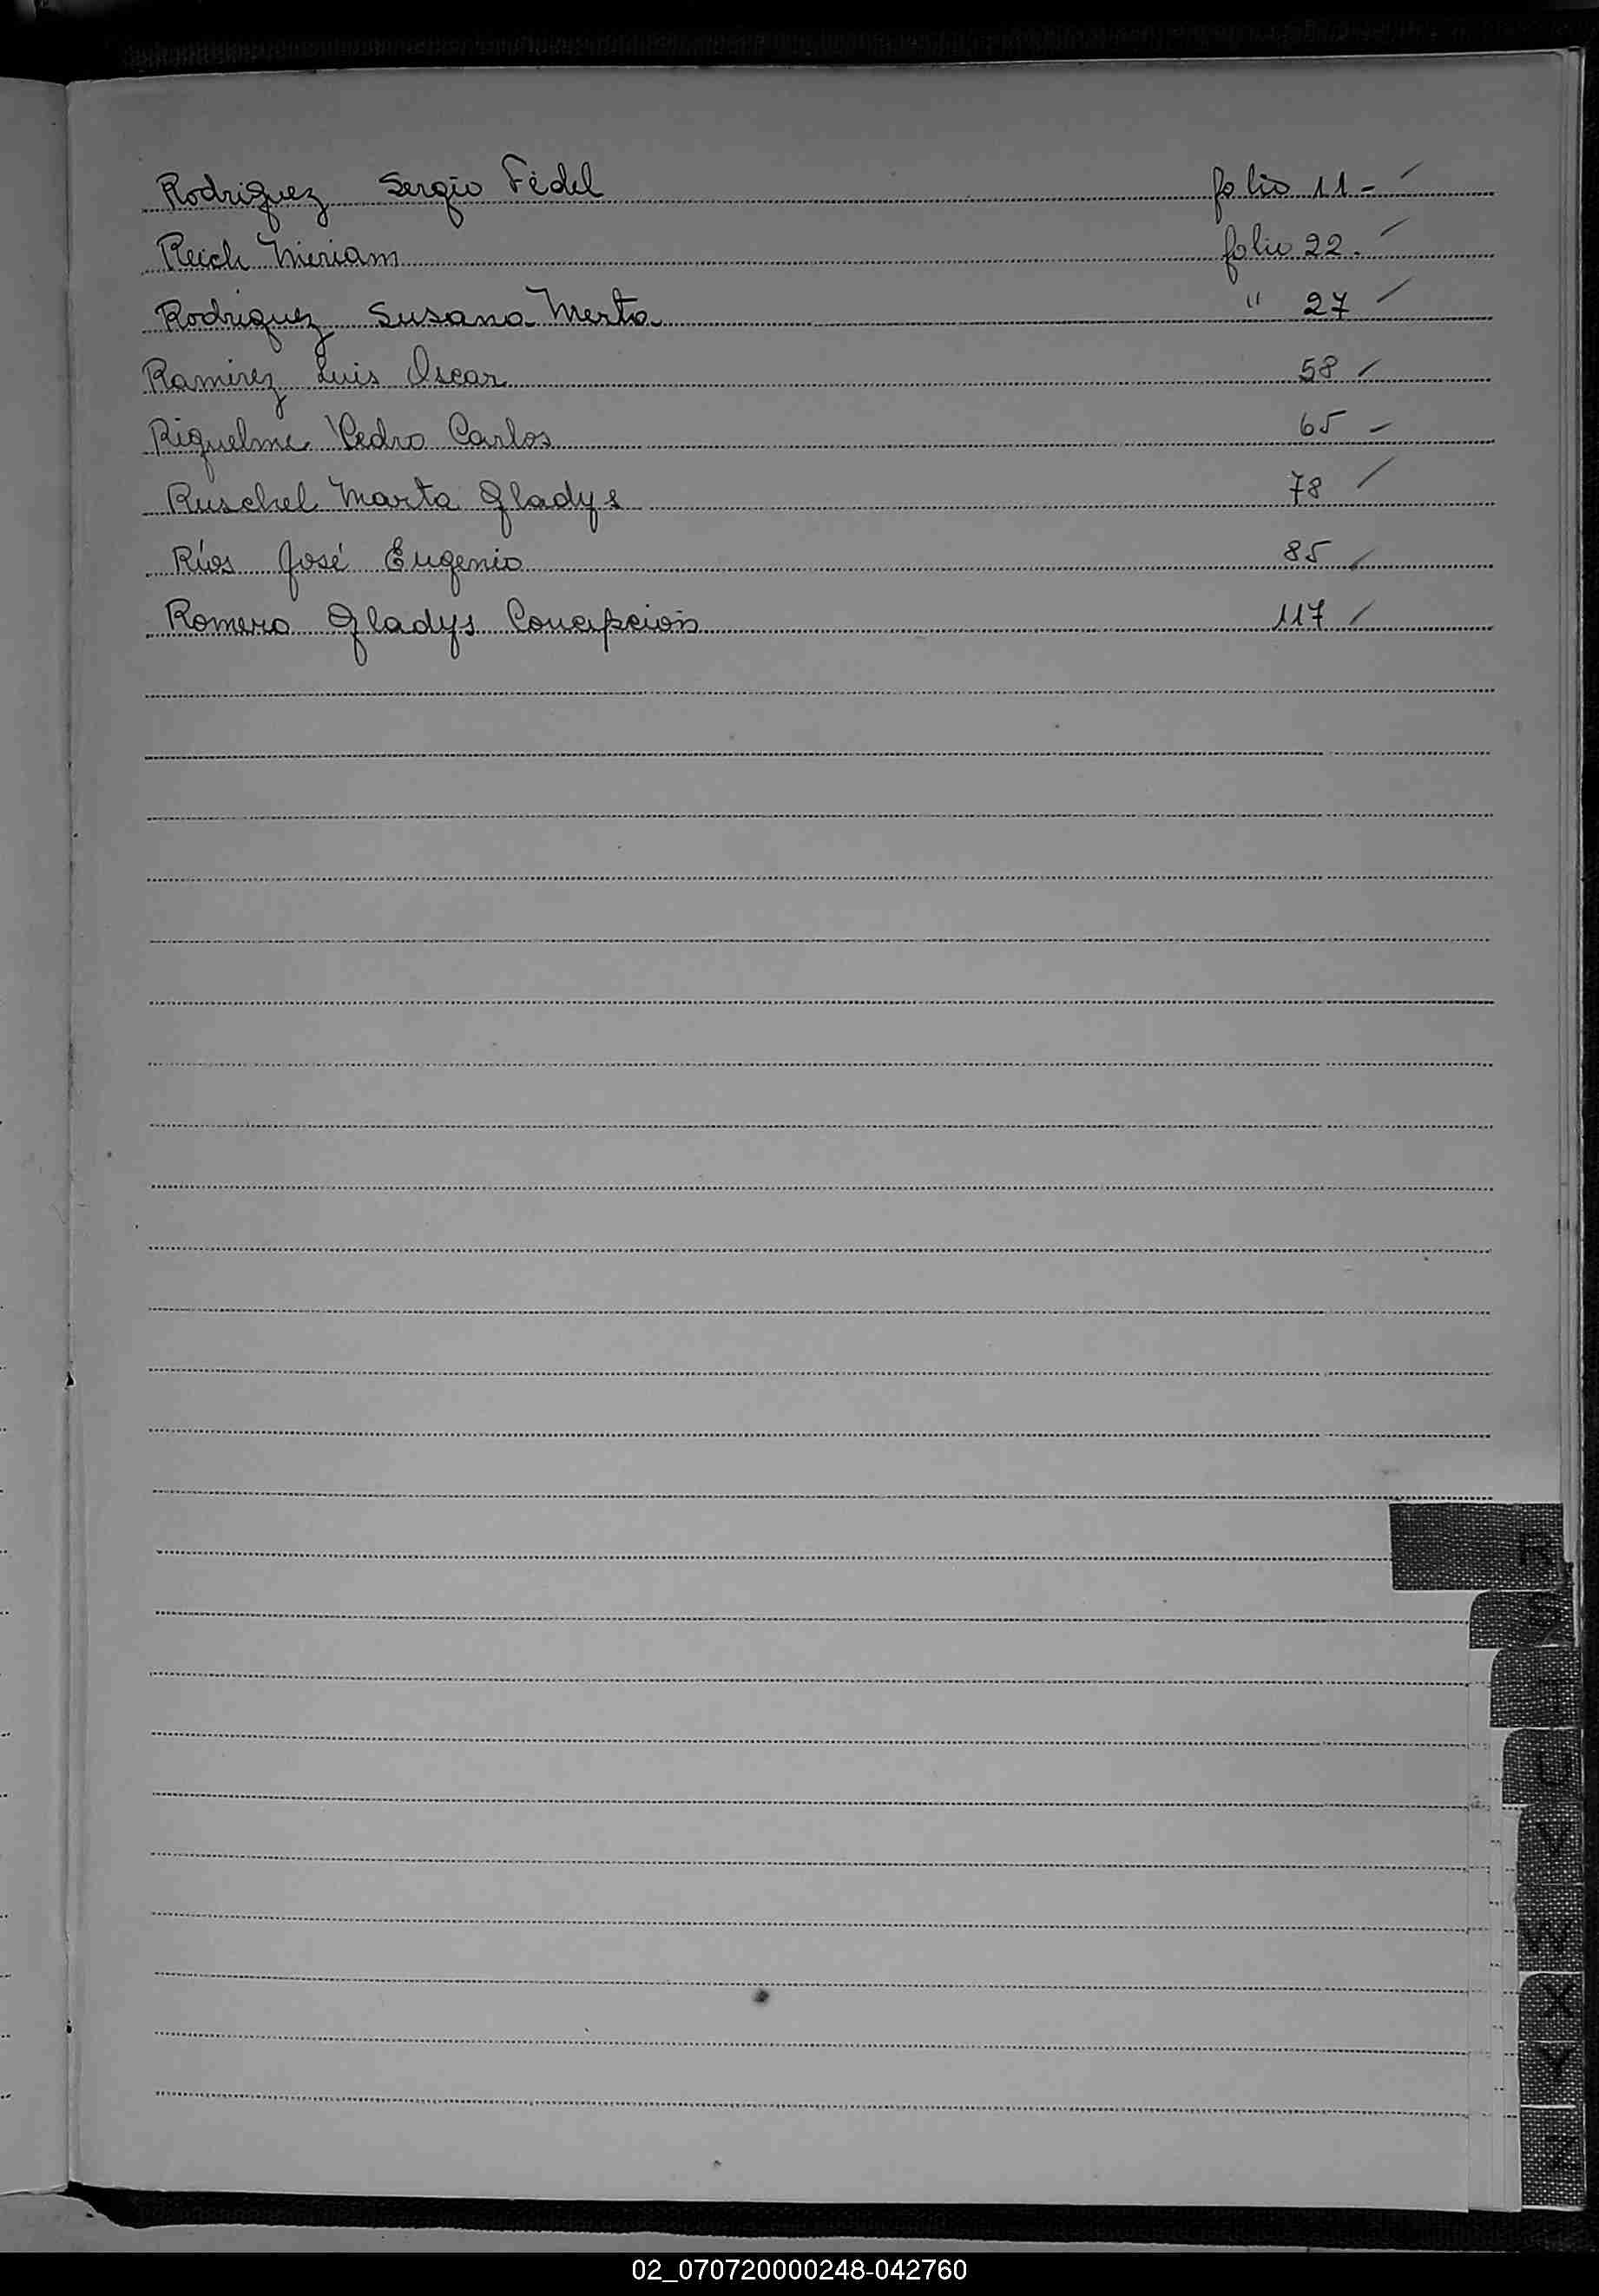 Rodriguez Sergio Fidel folio 11 -
Reich Miriam folio 22.
Rodriguez Susana Merta " 27
Ramirez Luis Oscar 58
Riquelme Pedro Carlos 65
Ruschel Marta Gladys 78
Ríos José Eugenio 85
Romero Gladys Concepción 117
R
S
T
U
V
W
X
Y
Z
02_070720000248-042760